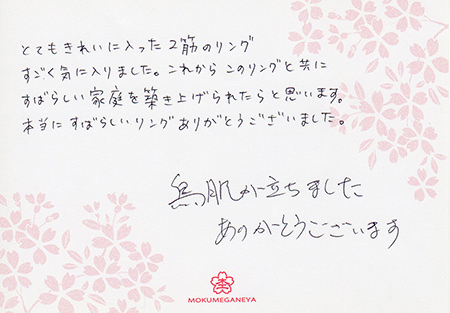 とてもきれいに入った2筋のリング
すごく気に入りました。これからこのリングと共に
すばらしい家庭を築き上げられたらと思います。
本当にすばらしいリングありがとうございました。
鳥肌が立ちました
ありがとうございます
MOKUMEGANEYA